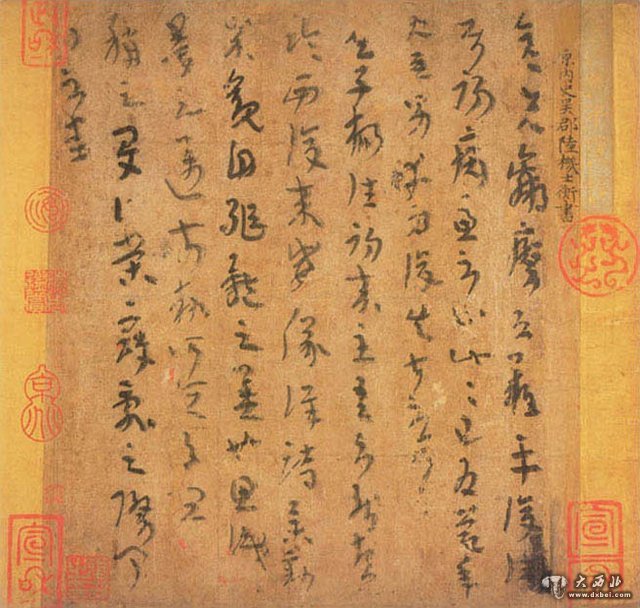 原内史吳郡陸機士衡書
彦先羸瘵恐難平復往屬
初病慮不止此此已為慶承
使唯男幸為復失前憂耳吳
子楊往初來主吾不能盡
臨西復來威儀詳跱舉動
成觀自軀體之美也思識
量之邁前執所恒有宜
稱之夏伯榮寇亂之際聞
問不悉
宣和
大西北
www.dxbei.com